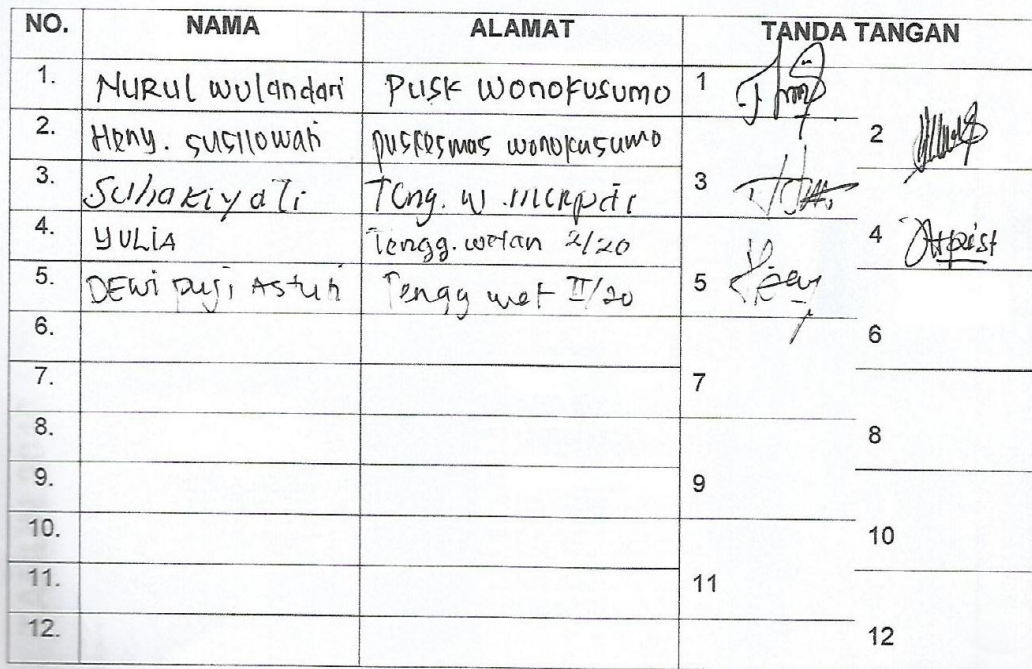 NO. NAMA ALAMAT TANDA TANGAN
1. NURUl wulandari PUSK WONOKUSUMO 1
2. Heny. SUSIlOWati puskesmas wonokusumo 2
3. Suhakiyati Teng. W 3
4. YULIA Tengg. wetan 2/20 4
5. DEWi Puji Astuti Tengg wet II/20 5
6. 6
7. 7
8. 8
9. 9
10. 10
11. 11
12. 12